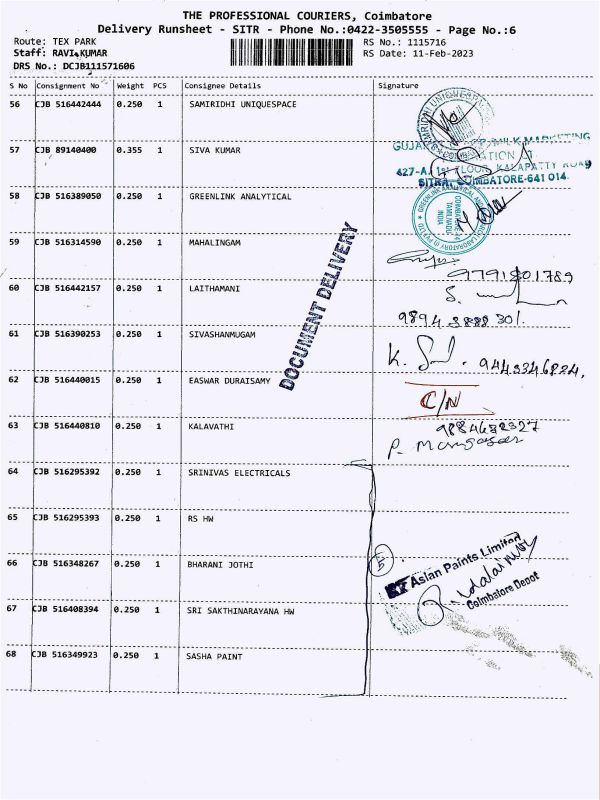 THE PROFESSIONAL COURIERS, Coimbatore
Delivery Runsheet - SITR - Phone No.:0422-3505555 - Page No.:6
Route: TEX PARK
Staff: RAVI KUMAR
DRS No.: DCJB111571606
RS No.: 1115716
RS Date: 11-Feb-2023
S No Consignment No Weight PCS Consignee Details Signature
56 CJB 516442444 0.250 1 SAMIRIDHI UNIQUESPACE
57 CJB 89140400 0.355 1 SIVA KUMAR
MILK MARKETING
427-A, 1st FLOOR, KALAPATTY ROAD
SITRA, COIMBATORE-641 014.
58 CJB 516389050 0.250 1 GREENLINK ANALYTICAL
COIMBATORE
TAMIL NADU
INDIA
59 CJB 516314590 0.250 1 MAHALINGAM
9791901789
60 CJB 516442157 0.250 1 LAITHAMANI
S.
98943888301.
61 CJB 516390253 0.250 1 SIVASHANMUGAM
K.
9443346824.
62 CJB 516440015 0.250 1 EASWAR DURAISAMY
C/N
63 CJB 516440810 0.250 1 KALAVATHI
9884682327
P.
DOCUMENT DELIVERY
64 CJB 516295392 0.250 1 SRINIVAS ELECTRICALS
65 CJB 516295393 0.250 1 RS HW
66 CJB 516348267 0.250 1 BHARANI JOTHI
5
Asian Paints Limited
Coimbatore Depot
67 CJB 516408394 0.250 1 SRI SAKTHINARAYANA HW
68 CJB 516349923 0.250 1 SASHA PAINT